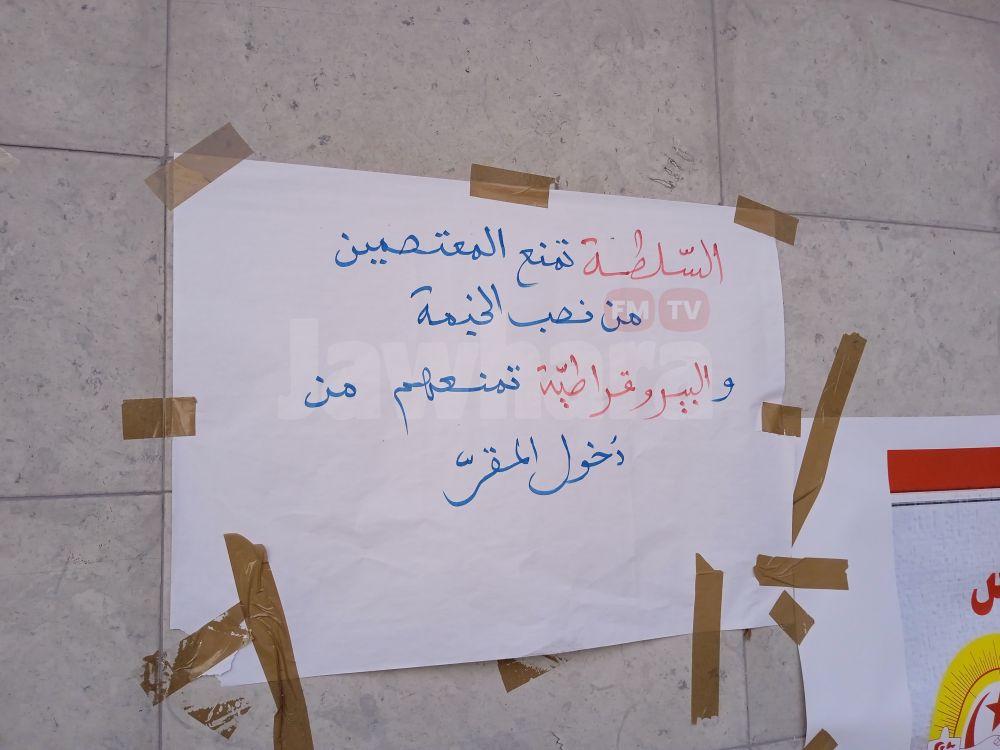 السّلطة تمنع المعتصمين
من نصب الخيمة
FM TV
Jawhara
والبيروقراطيّة تمنعهم من
دخول المقرّ